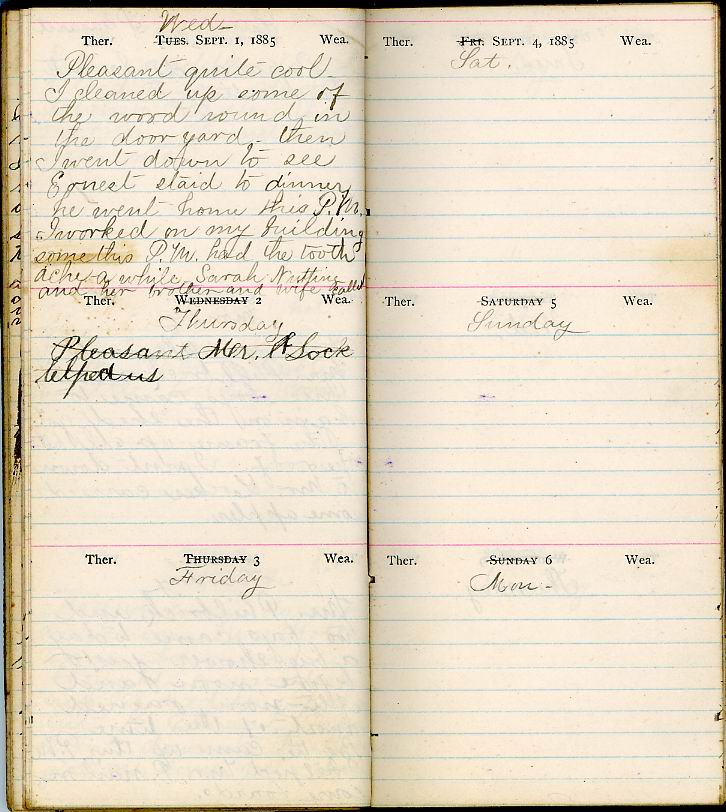 Wed-
Ther. TUES. SEPT. 1, 1885 Wea.
Pleasant quite cool
I cleaned up some of
the wood round in
the door yard - then
I went down to see
Ernest staid to dinner
he went home this P.M.
I worked on my building
some this P.M. had the tooth
ache a while Sarah Nutting
and her brother and wife called
Ther. WEDNESDAY 2 Wea.
Thursday
Pleasant Mr. Lock
helped us
Ther. THURSDAY 3 Wea.
Friday
Ther. FRI. SEPT. 4, 1885 Wea.
Sat.
Ther. SATURDAY 5 Wea.
Sunday
Ther. SUNDAY 6 Wea.
Mon-